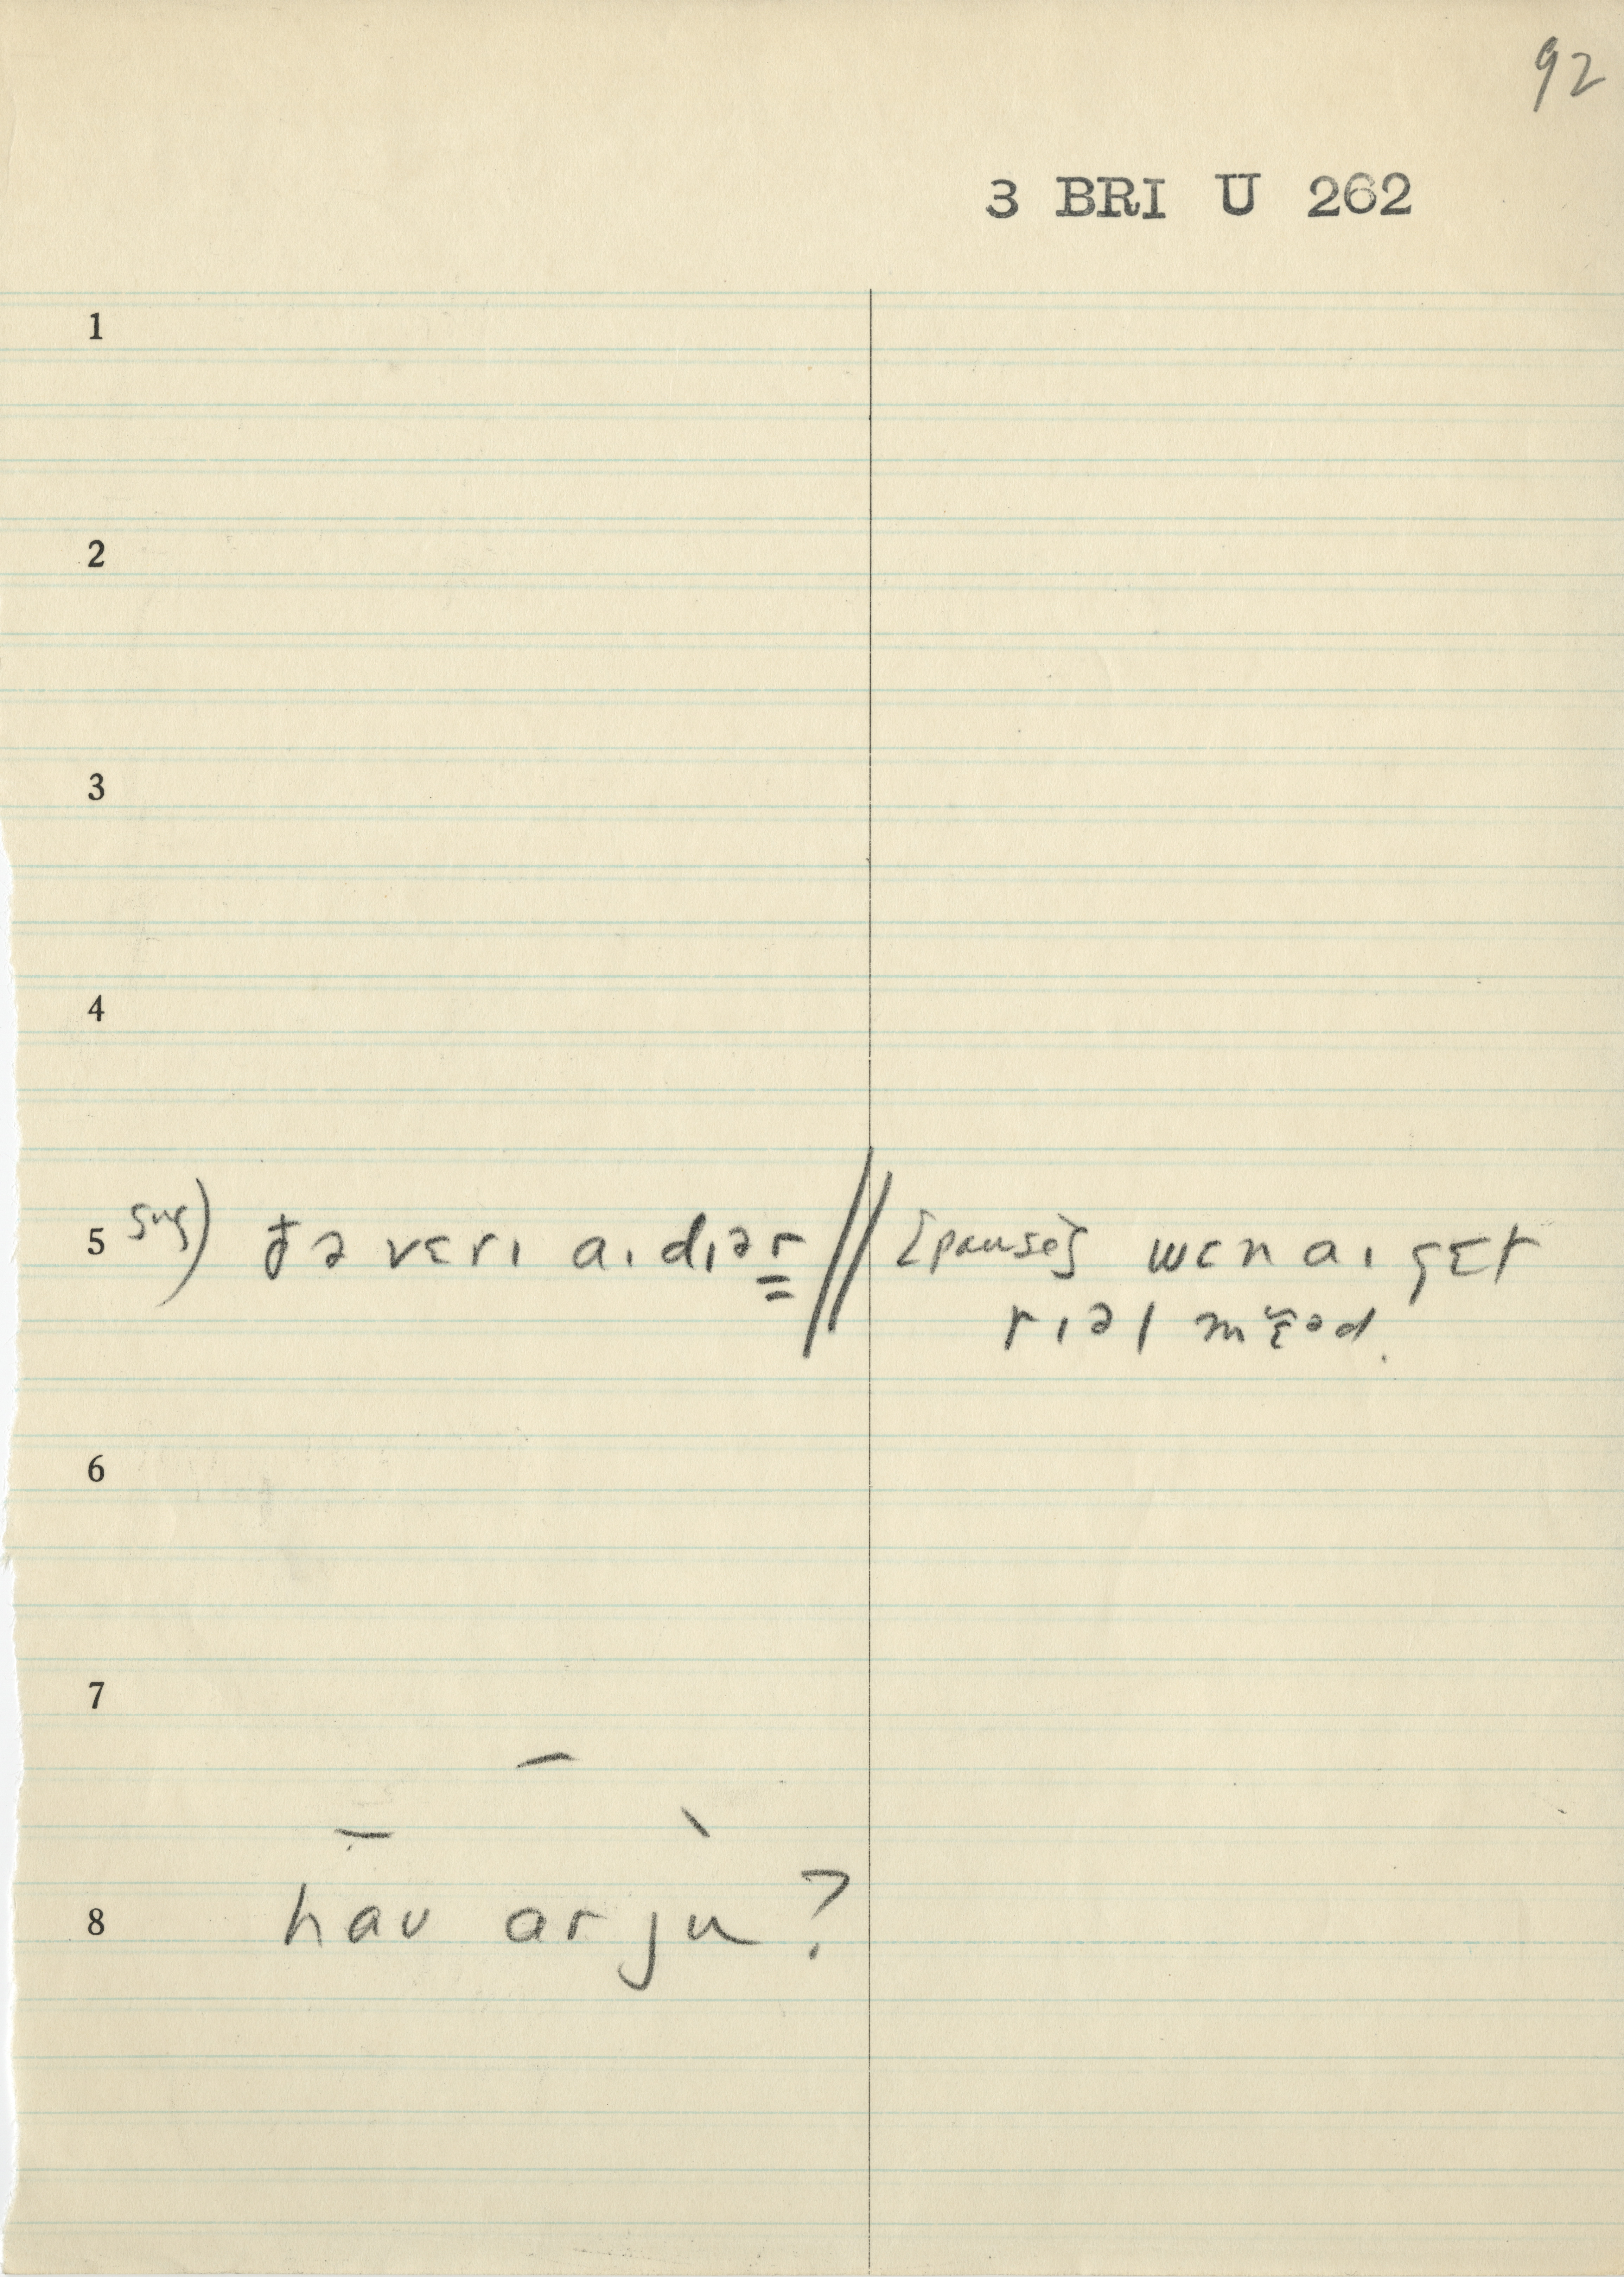 92
3 BRI U 262
1
2
3
4
5 sug) đə vɛrɪ aɪdɪər // [pause] wɛn aɪ gɛt
rɪəl mɛəd.
6
7
8 haʊ ar ju ?